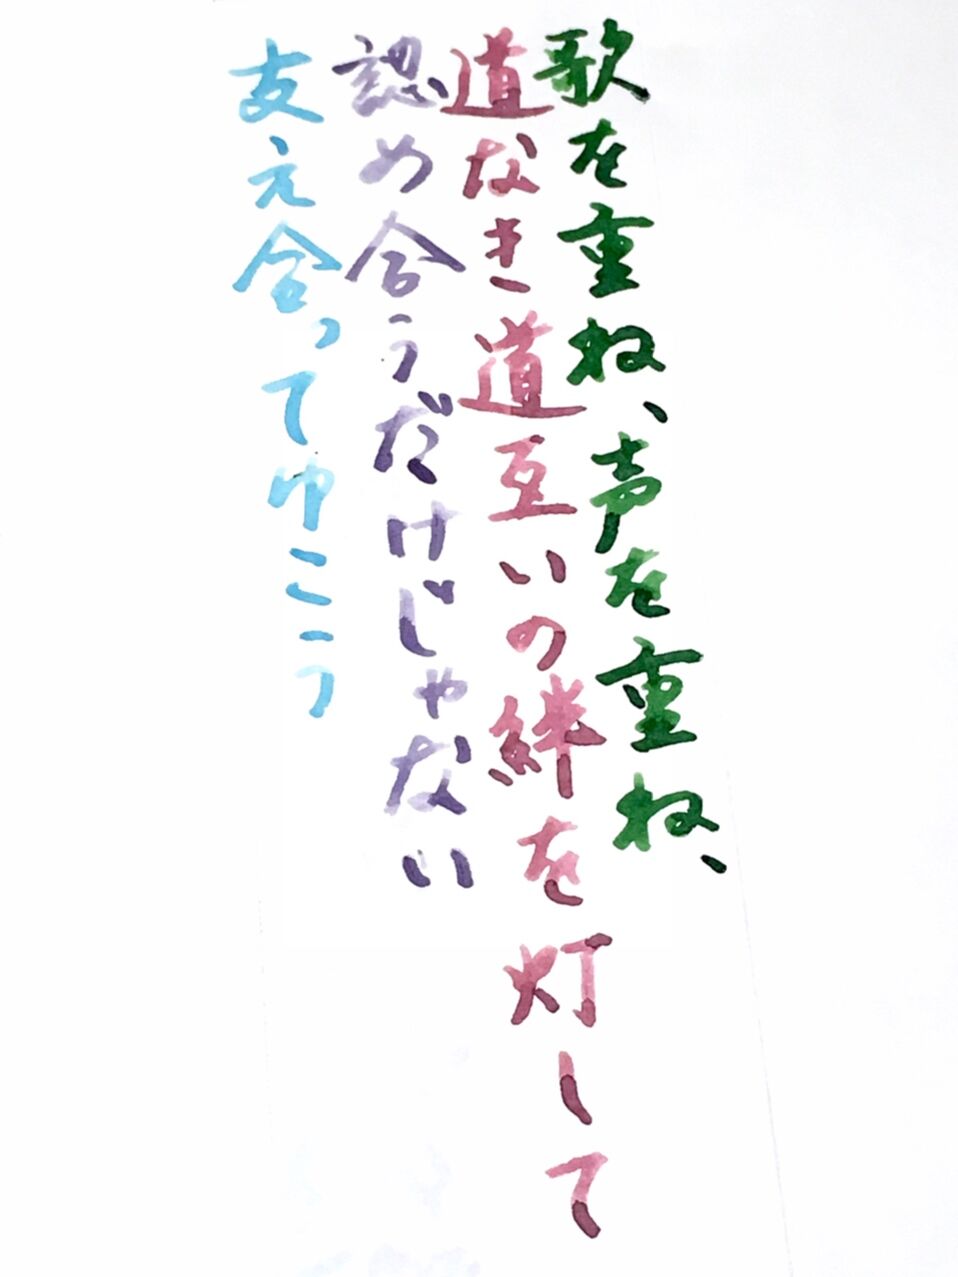 歌を重ね、声を重ね、
道なき道互いの絆を灯して
認め合うだけじゃない
支え合ってゆこう